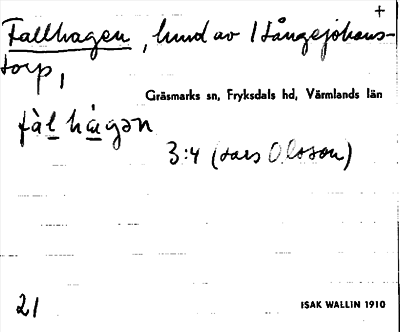 +
Fallhagen, hund av 1 Långejohans-
torp,
Gräsmarks sn, Fryksdals hd, Värmlands län
fàl hàgən
3:4 (Lars Olsson)
21
ISAK WALLIN 1910